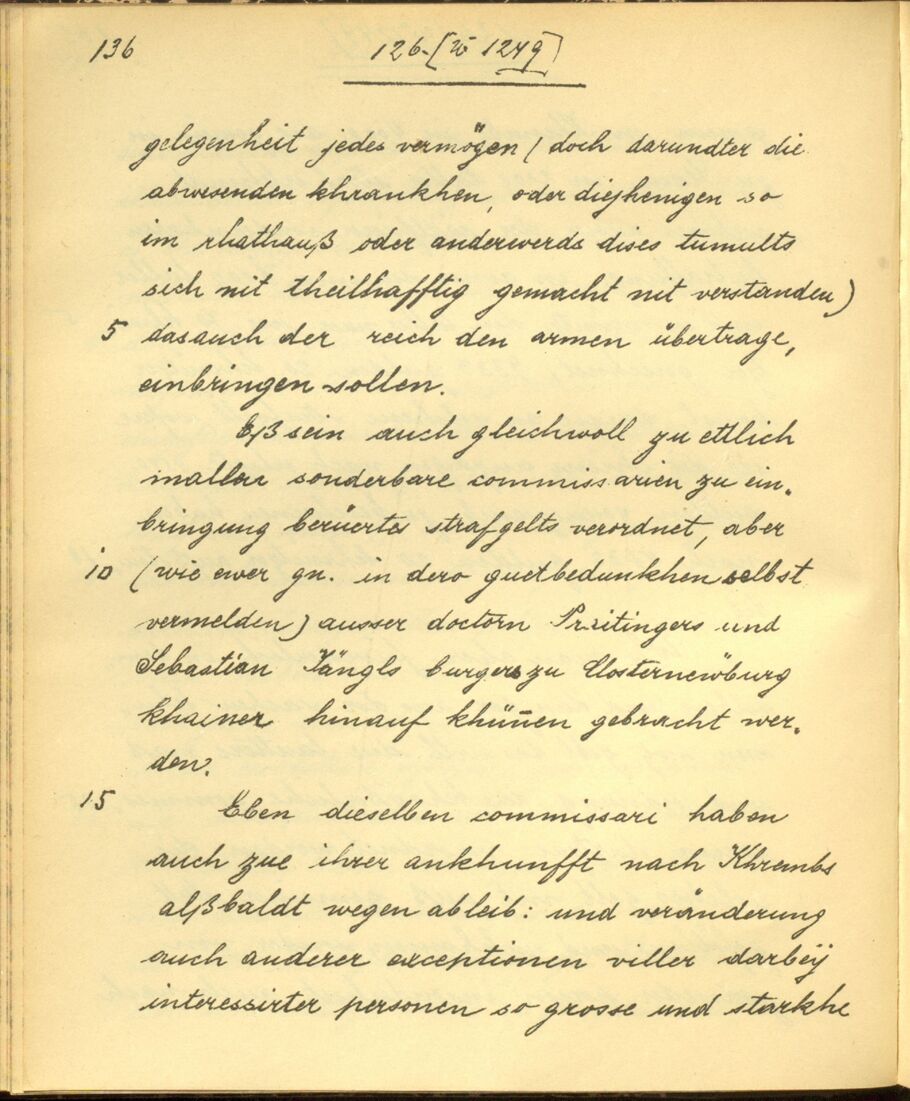 136
126. [W 1249]
gelegenheit jedes vermögen ( doch darundter die
abwesenden khrankhen, oder diejhenigen so
im rhathauß oder anderwerds dises tumults
sich nit theilhafftig gemacht nit verstanden )
5 das auch der reich den armen übertrage,
einbringen sollen.
Eß sein auch gleichwoll zu ettlich
mallen sonderbare commissarien zu ein-
bringung berüertes strafgelts verordnet, aber
10 ( wie ewer gn. in dero guetbedunkhen selbst
vermelden ) ausser doctorn Preitingers und
Sebastian Kängls burgers zu Closternewburg
khainer hinauf khünen gebracht wer-
den.
15 Eben dieselben commissari haben
auch zue ihrer ankhunfft nach Khrembs
alßbaldt wegen ableib: und veränderung
auch anderer exceptionen viller darbëy
interessirter personen so grosse und starkhe